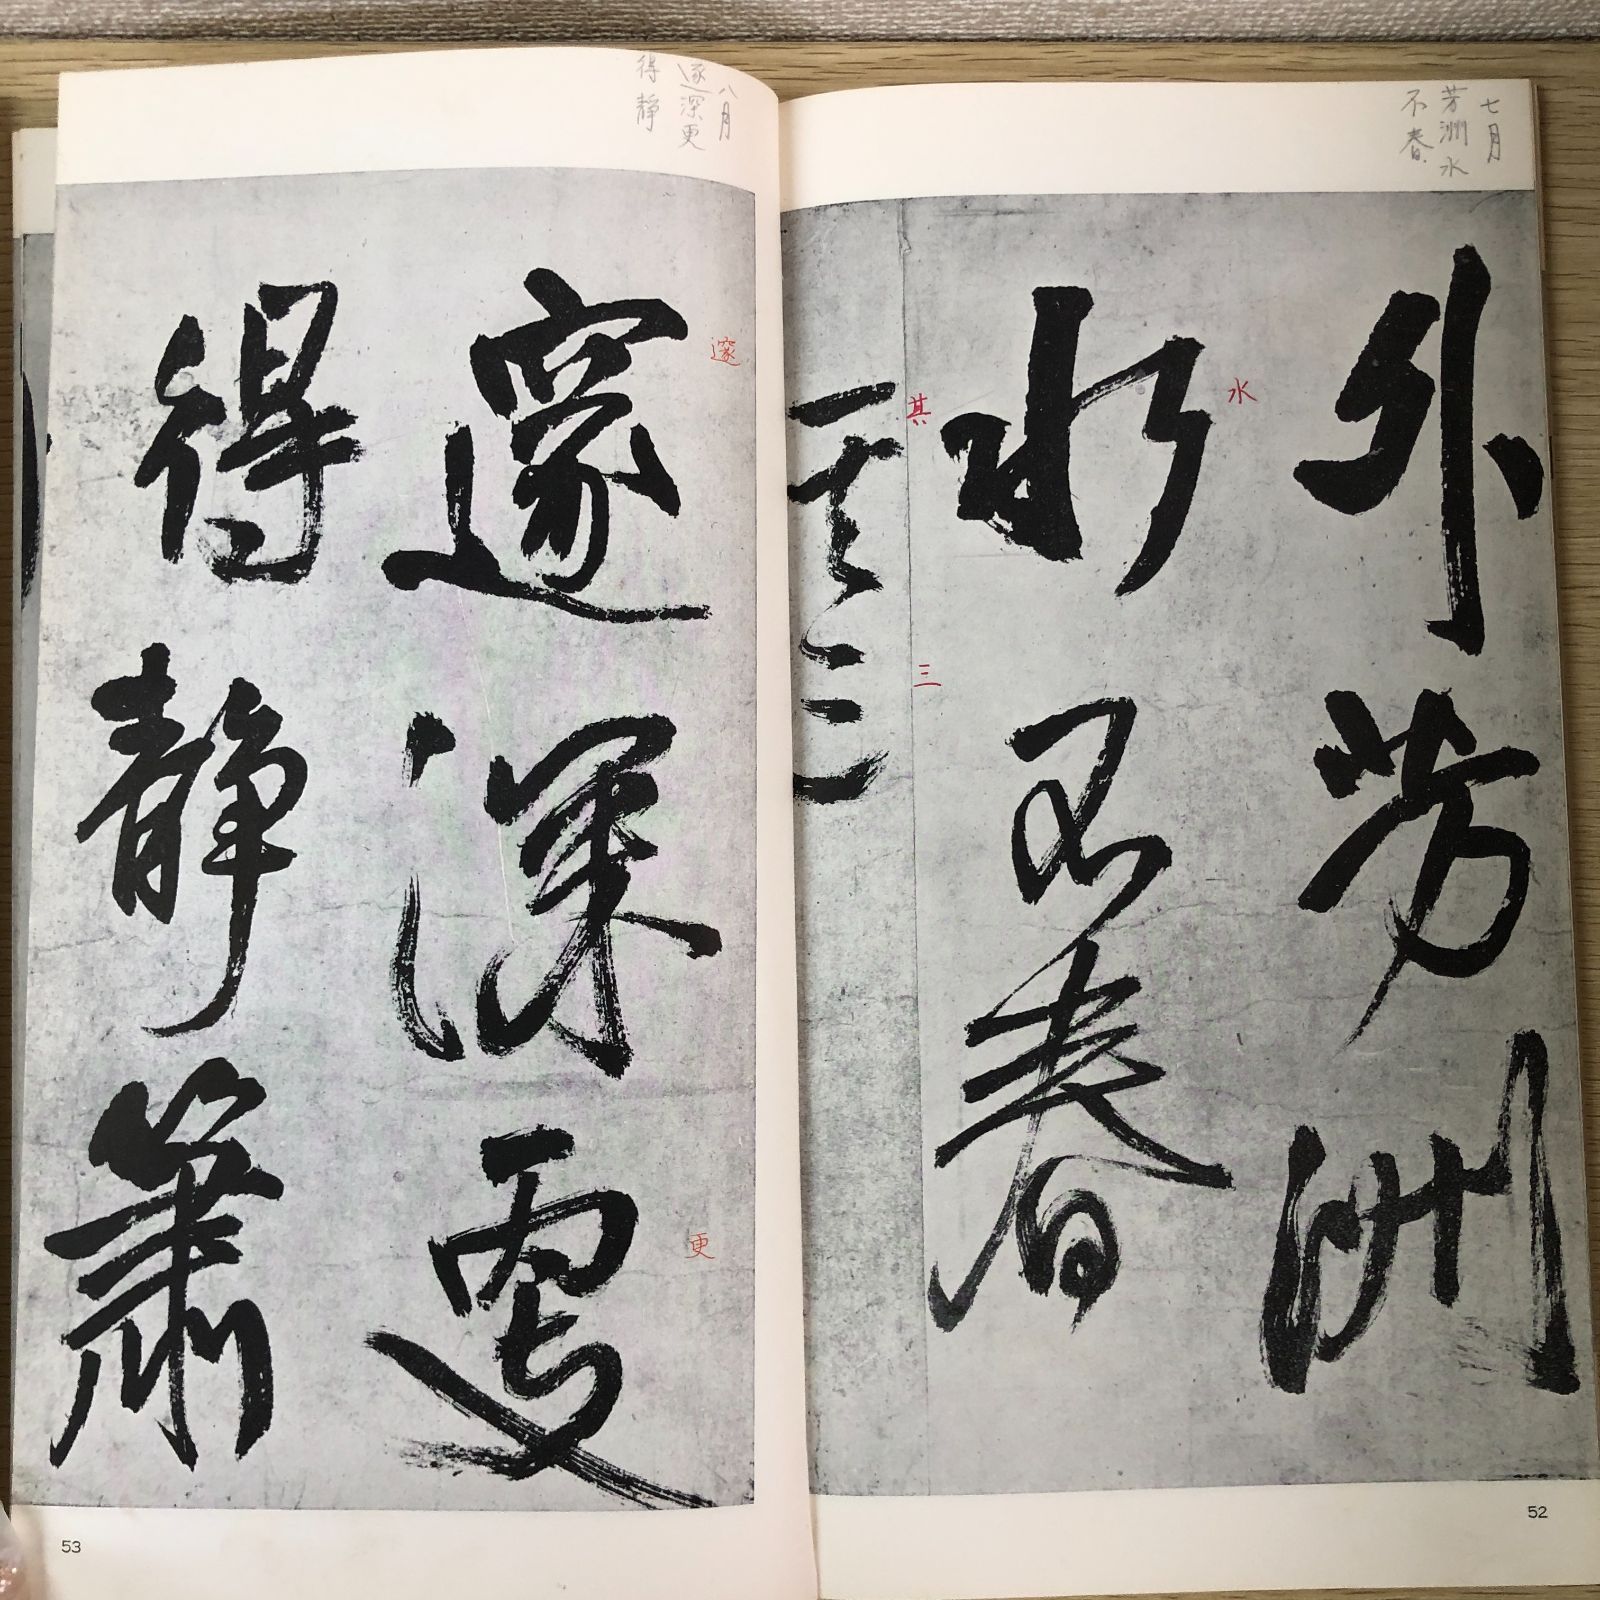 七月
芳洲水
不春
外芳洲
水
水不春
其
三
其三
52
八月
邃深更
得静
邃
邃深更
更
得静蕭
53